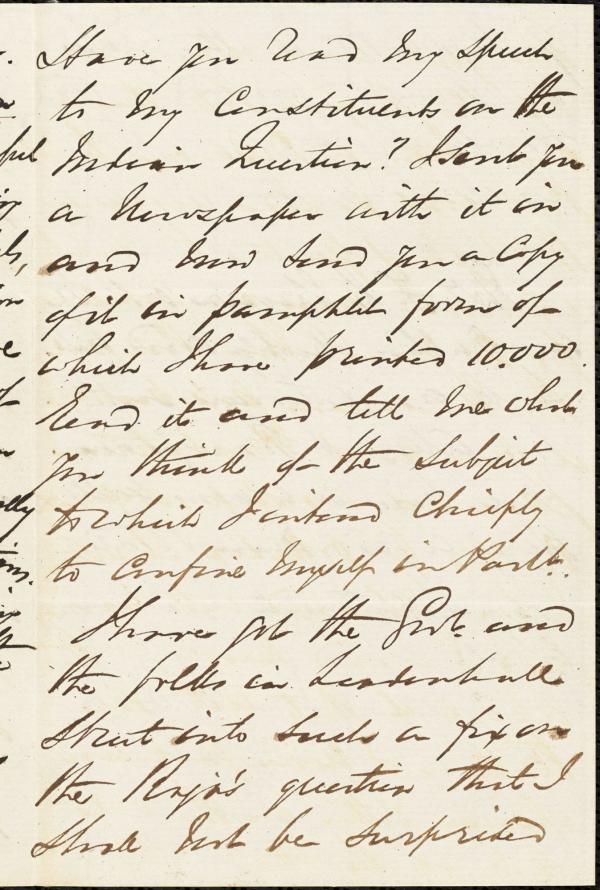 Have you read my speech
to my Constituents on the
Indian Question? I sent you
a Newspaper with it in
and now send you a Copy
of it in pamphlet form of
which I have printed 10.000.
Read it and tell me what
you think of the subject
to which I intend Chiefly
to confine myself in Parlt.
I have got the Govt. and
the folks in Leadenhall
Street into such a fix on
the Raja's question that I
shall not be surprised